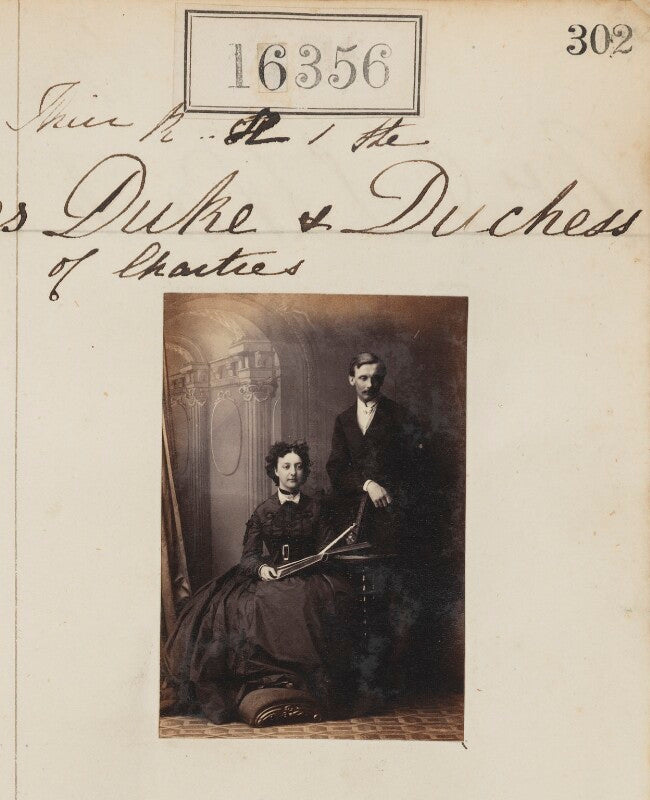 302
16356
Their R. H / the
s Duke & Duchess
of Chartres